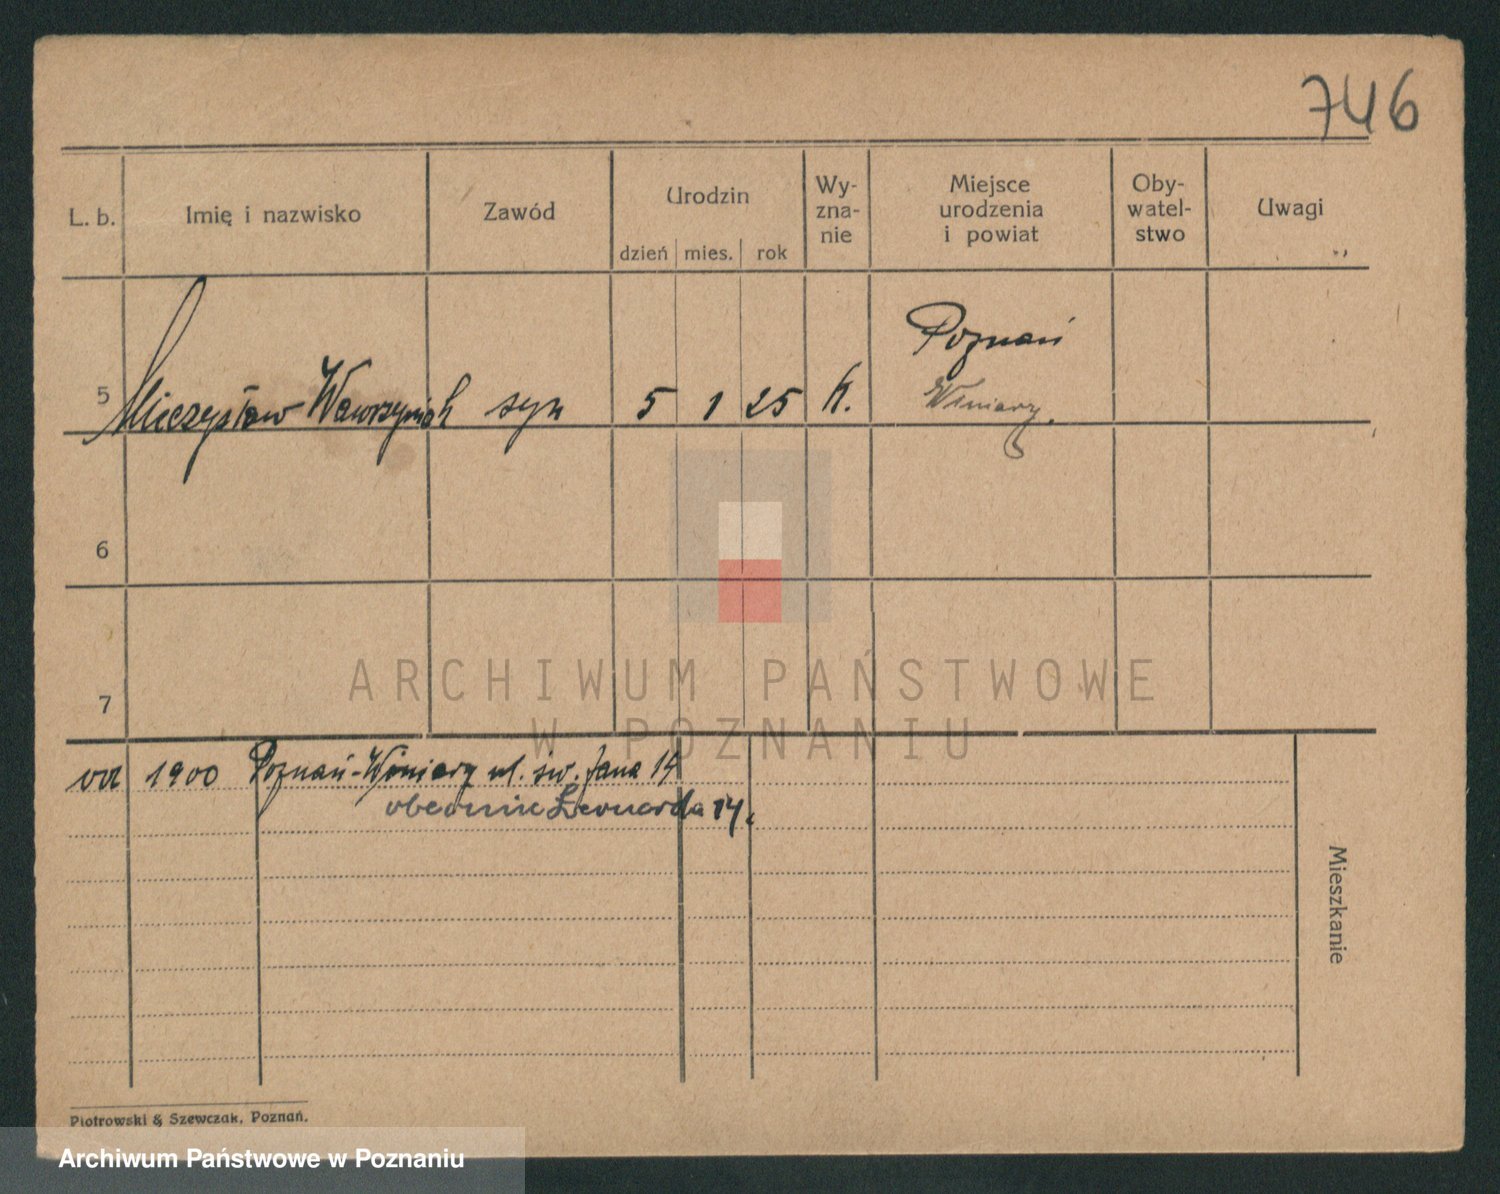 746
L. b. Imię i nazwisko Zawód Urodzin Wy- Miejsce Oby- Uwagi
zna- urodzenia watel-
nie i powiat stwo
dzień mies. rok
Poznań
5 Mieczysław Wawrzyniak syn 5 1 25 k. Winiary.
6
7
ARCHIWUM PAŃSTWOWE
W POZNANIU
od 1900 Poznań-Winiary ul. św. Jana 14
obecnie Leonarda 14.
Mieszkanie
Piotrowski & Szewczak, Poznań.
Archiwum Państwowe w Poznaniu